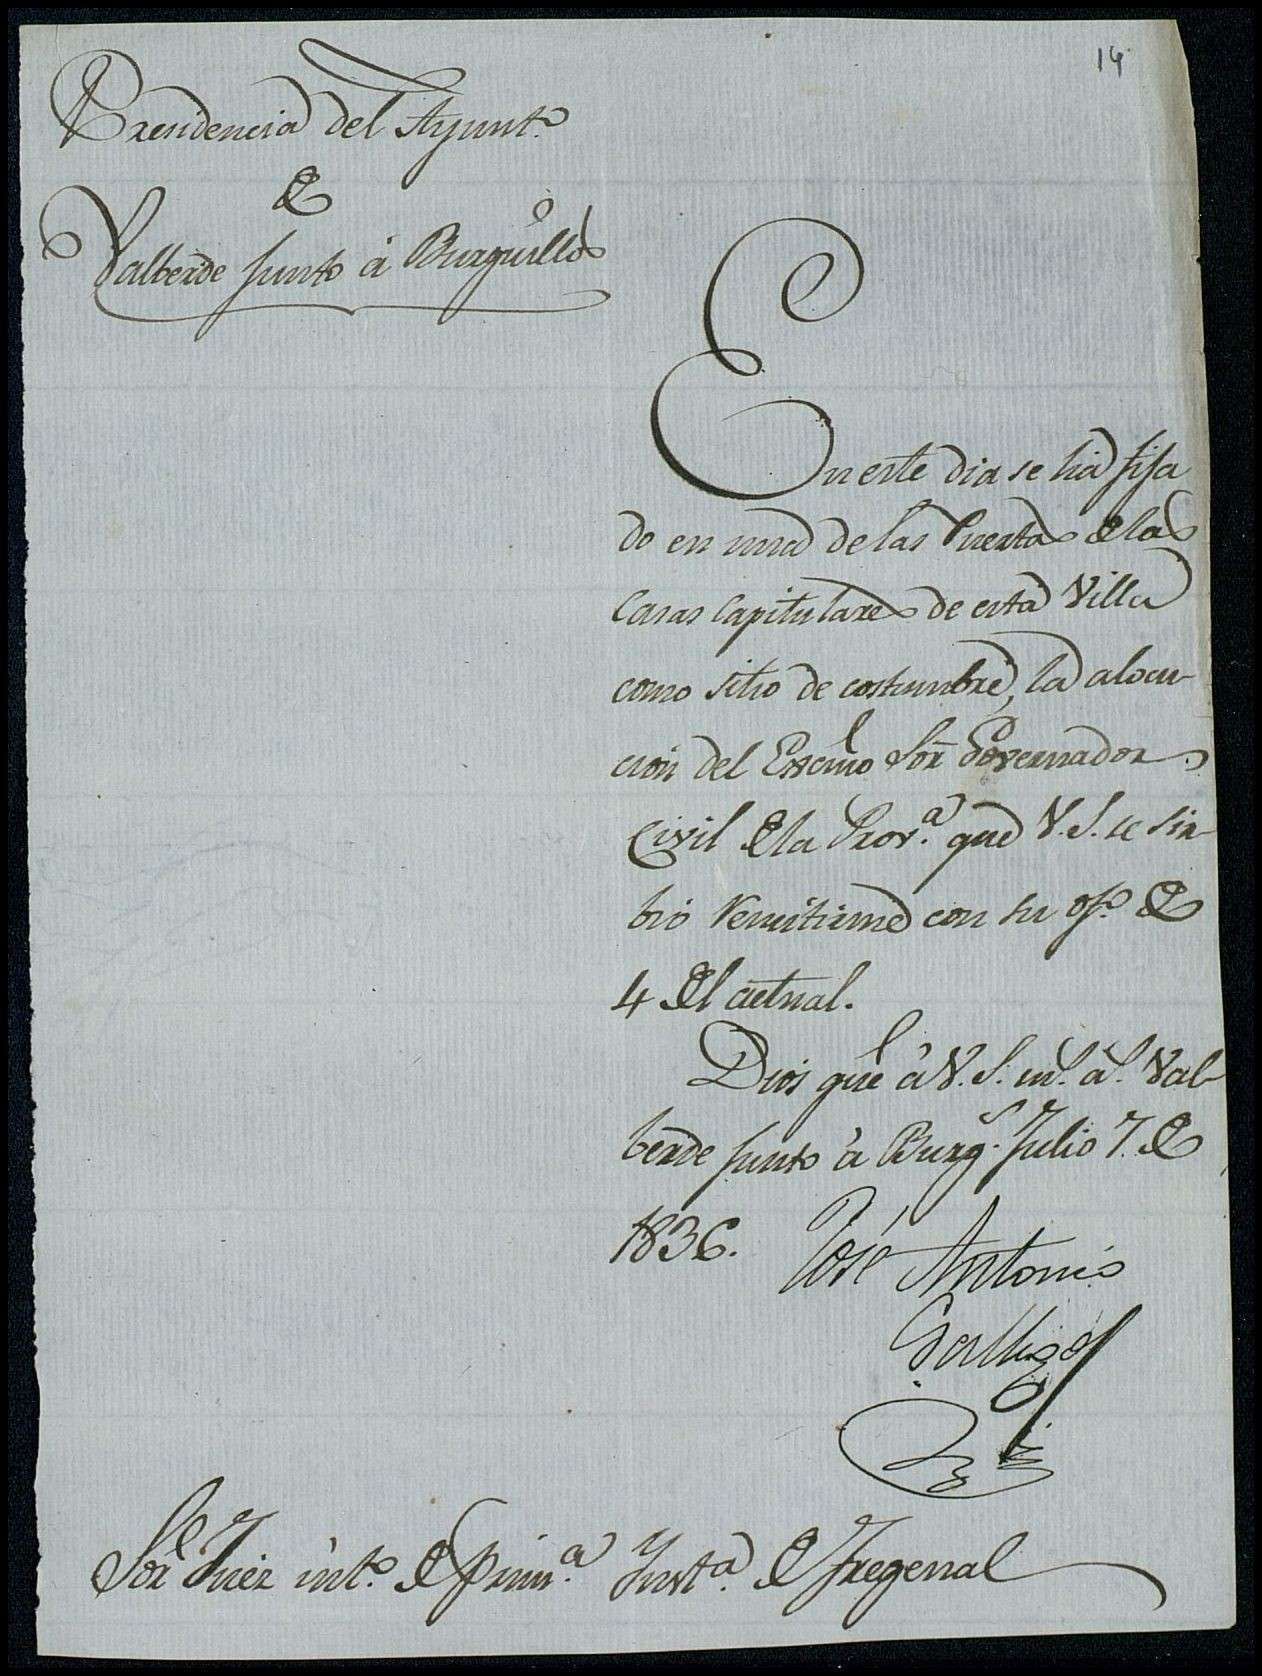 14
Presidencia del Ayunt.o
de
Valberde Junto á Burguillos
En este dia se há fija
do en una de las Puertas de las
Casas Capitulares de esta Villa
como sitio de costumbre, la alocu-
ción del Excmo Sor Governador
Civil de la Prov.a que V.S. se sir-
bió remitirme con su of.o de
4 del actual.
Dios gue á V.S. m.s a.s Val-
berde Junto á Burg.s Julio 7 de
1836.
José Antonio
Sor Juez int.o de Prim.a Inst.a de Fregenal